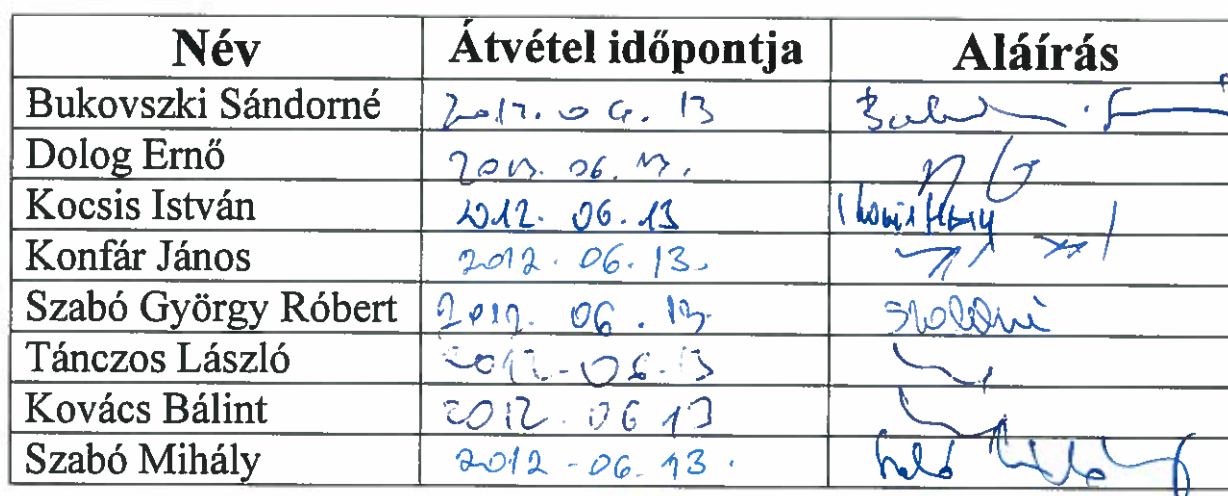 Név Átvétel időpontja Aláírás
Bukovszki Sándorné 2012. 06. 13
Dolog Ernő 06. 13.
Kocsis István 2012. 06. 13
Konfár János 2012. 06. 13.
Szabó György Róbert 2012. 06. 13.
Tánczos László 2012-06-13
Kovács Bálint 2012. 06 13
Szabó Mihály 2012-06.13.